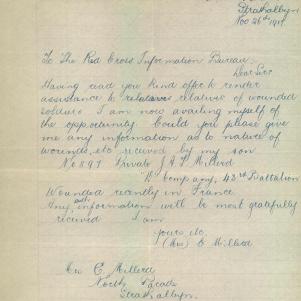 Strathalbyn
Nov 26th 1917
To The Red Cross Information Bureau
Dear Sirs
Having read you kind offer to render
assistance to relatives of wounded
soldiers I am now availing myself of
the oppertunity Could you please give
me any information as to nature of
wounds, etc recieved by my son
No 897 Private J A F Millerd
Company, 43rd Battalion
Wounded recently in France
Any information will be most gratefully
recieved I am
yours, etc,
(Mrs) E Millerd
Mrs E Millerd
North Parade
Strathalbyn.